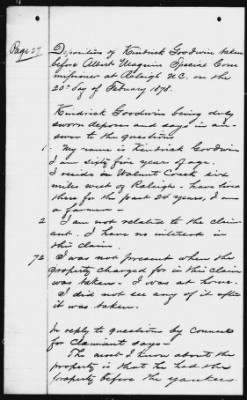 Page 27
Deposition of Kindrick Goodwin taken
before Albert Magnin Special Com
missioner at Raleigh N.C. on the
20th day of February 1878.
Kindrick Goodwin being duly
sworn deposes and says in an
swer to the questions
1. My name is Kindrick Goodwin
I am sixty five years of age.
I reside on Walnut Creek six
miles west of Raleigh - have lived
there for the past 20 years, I am
farmer -
2 I am not related to the claim
ant. I have no interest in
this claim.
72 I was not present when the
property charged for in this claim
was taken - I was at home.
I did not see any of it after
it was taken.
In reply to questions by counsel
for Claimant says -
The most I know about the
property is that he had the
property before the yankees